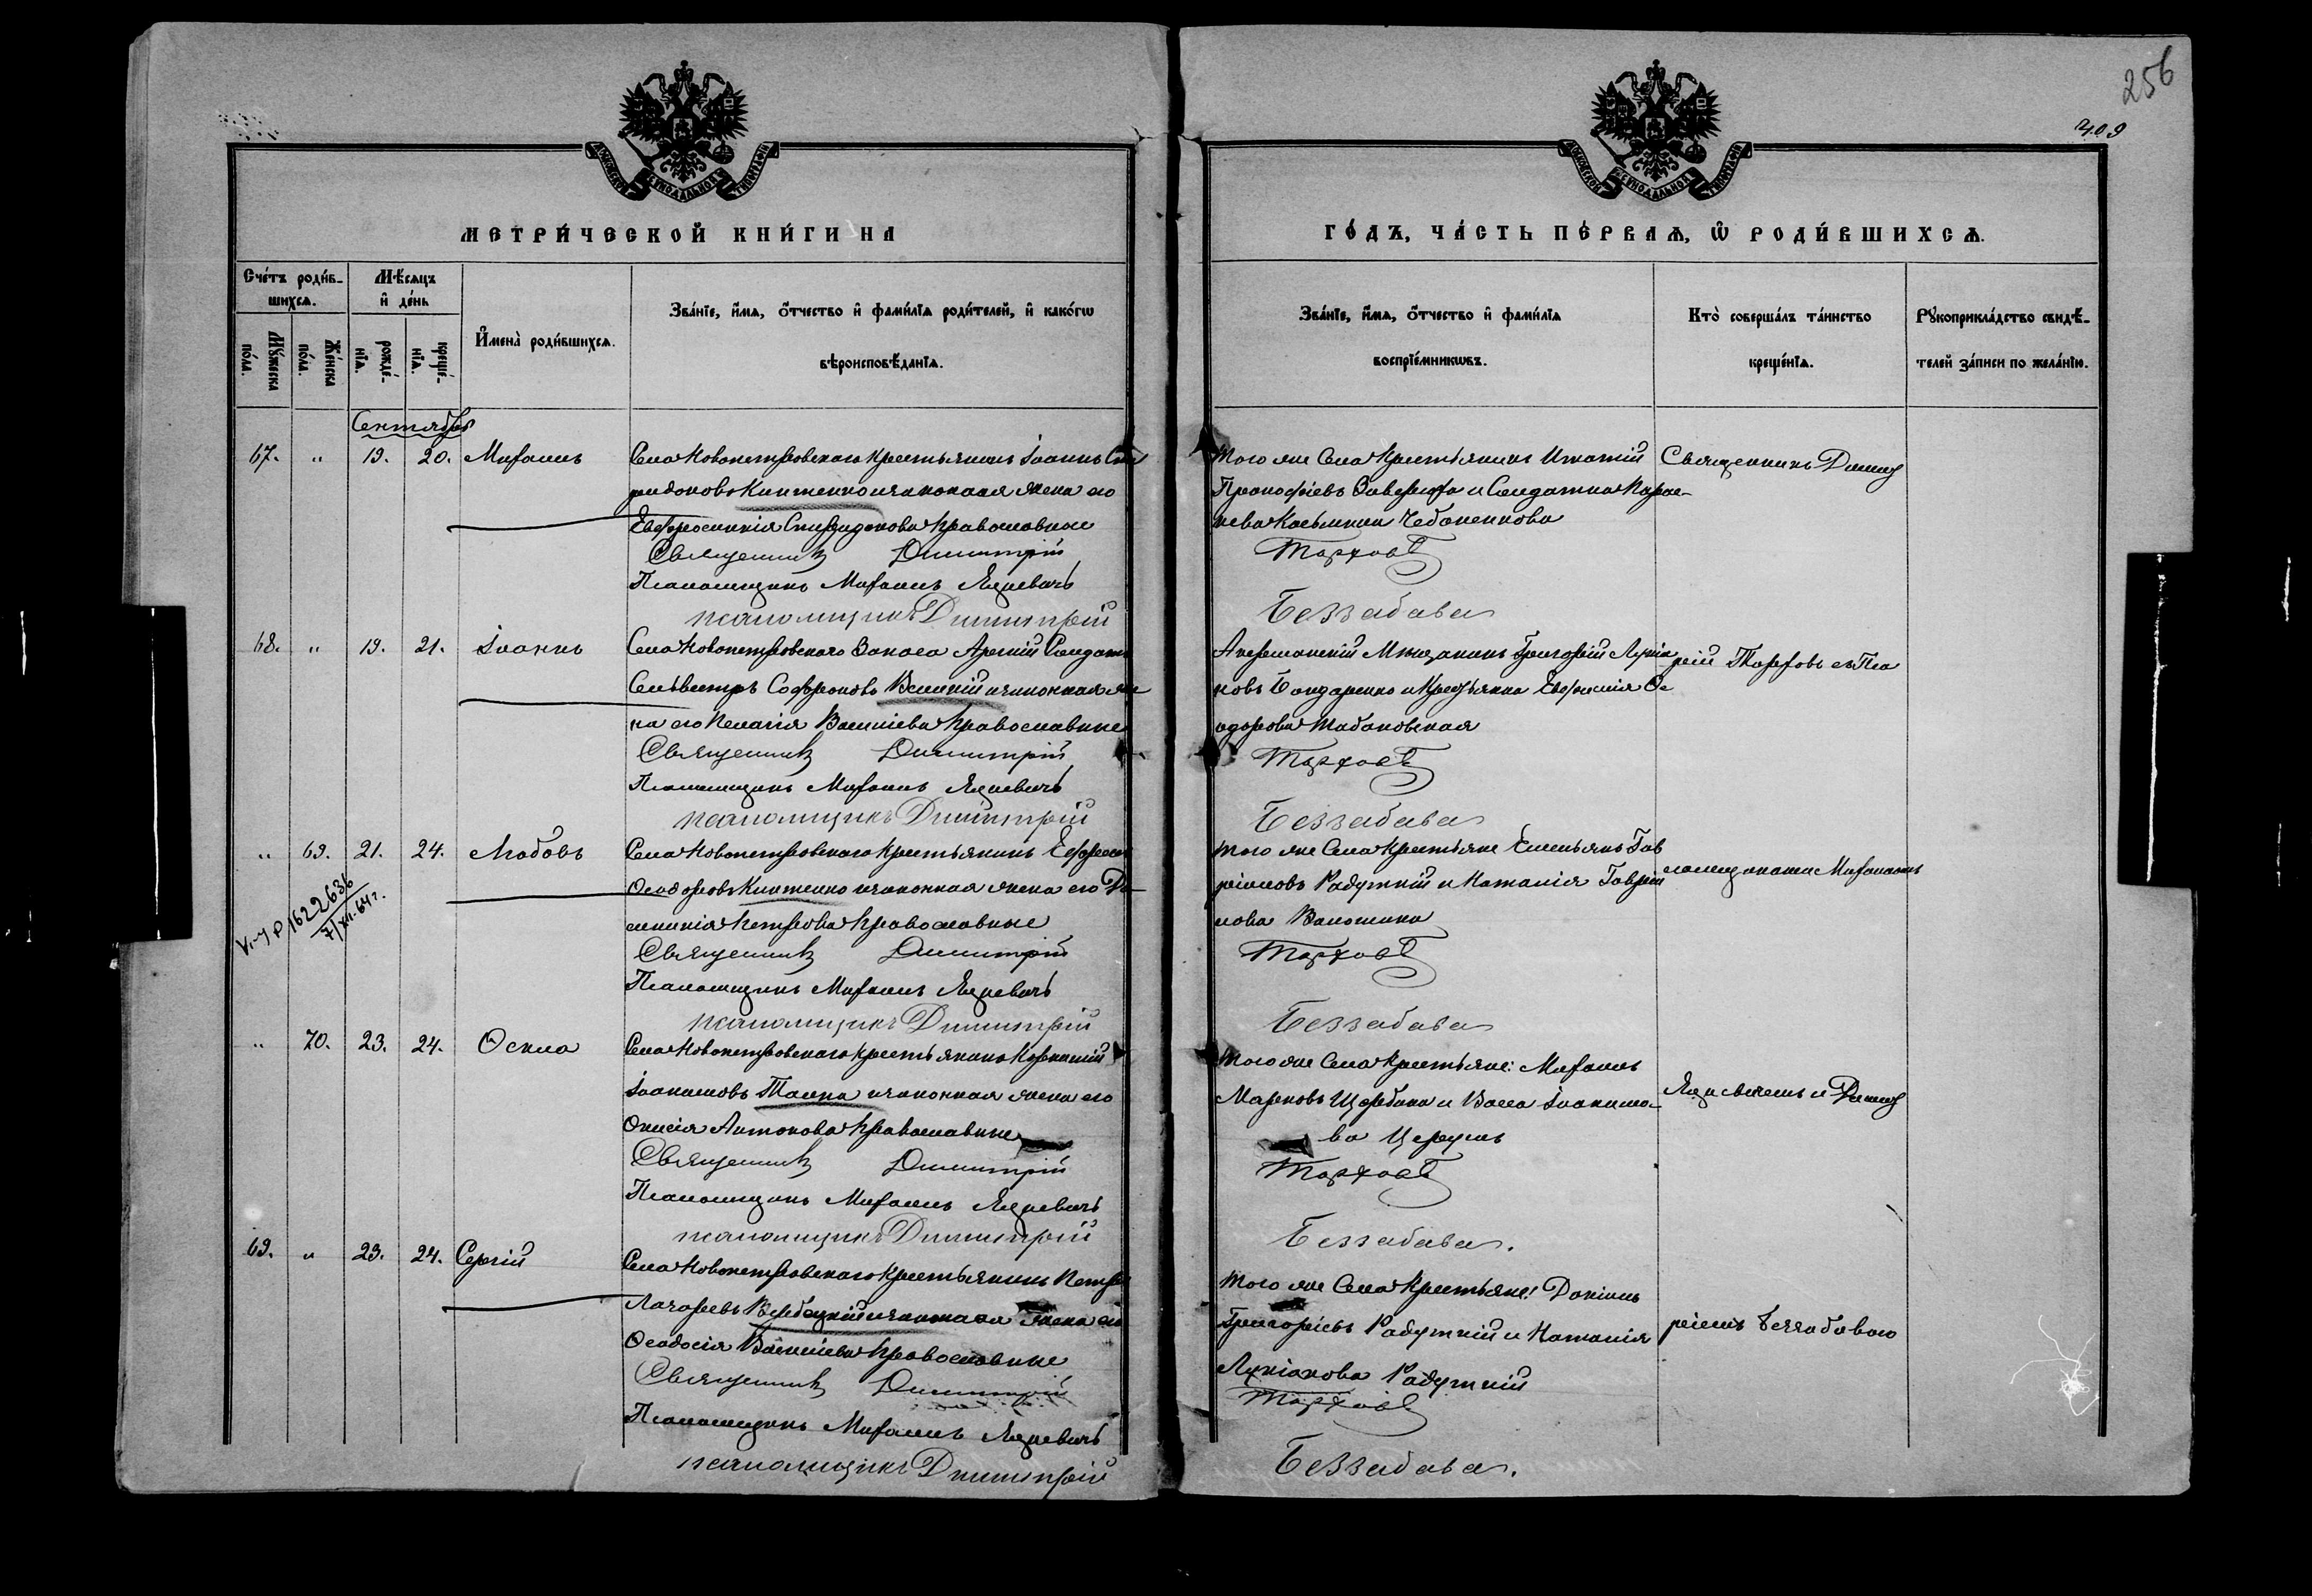 256
409
МОСКОВСКОЙ СѴНОДАЛЬНОЙ ТИПОГРАФІИ
МОСКОВСКОЙ СѴНОДАЛЬНОЙ ТИПОГРАФІИ
МЕТРИ́ЧЕСКОЙ КНИ́ГИ НА
ГО́ДЪ, ЧА́СТЬ ПЕ́РВАѦ, Ѿ РОДИ́ВШИХСѦ.
Сче́тъ роди́в-
шихсѧ.
Мꙋ́жеска
по́ла.
Же́нска
по́ла.
Мѣ́сѧцъ
и҆ де́нь
рожде́-
нїѧ.
креще́-
нїѧ.
И҆мена̀ роди́вшихсѧ.
Зва́нїе, и҆́мѧ, ѻ҆́тчество и҆ фами́лїѧ роди́телей, и҆ како́гѡ
вѣроисповѣ́данїѧ.
Зва́нїе, и҆́мѧ, ѻ҆́тчество и҆ фами́лїѧ
воспрїе́мникѡвъ.
Кто̀ соверша́лъ та́инство
креще́нїѧ.
Рꙋкоприкла́дство свидѣ́-
телей за́писи по жела́нїю.
Сентябрь
67. " 19. 20. Михаилъ
Села Новопетровскаго крестьянинъ Іоаннъ Спи
ридоновъ Книженко и законная жена его
Евфросинія Спиридонова православные
Священникъ Димитрій
Псаломщикъ Михаилъ Яцкевичъ
псаломщикъ Димитрій
того же Села крестьянинъ Игнатій
Прокофіевъ и Солдатка Параскева Косьмина
Тарховъ
Беззабава
Священникъ Димит
68. " 19. 21. Іоаннъ
Села Новопетровскаго Запаса Арміи Солдатъ
Сильвестръ Софроновъ и законная же
на его Пелагія Василіева православные
Священникъ Димитрій
Псаломщикъ Михаилъ Яцкевичъ
псаломщикъ Димитрій
Акерманскій Мѣщанинъ Григорій Лукіа
новъ Бондаренко и крестьянка Евфимія Ѳе
одорова
Тарховъ
Беззабава
рій Тарховъ съ Пса
" 69. 21. 24. Любовь
Села Новопетровскаго крестьянинъ
Ѳеодоровъ Книженко и законная жена его До
мникія Петрова православные
Священникъ Димитрій
Псаломщикъ Михаилъ Яцкевичъ
псаломщикъ Димитрій
того же Села крестьяне Емельянъ Гав
ріиловъ Радуцкій и Наталія Гавріи
лова
Тарховъ
Беззабава
ломщиками Михаиломъ
1622636
7/XII-64 г.
" 70. 23. 24. Ѳекла
Села Новопетровскаго крестьянинъ Корнилій
Іоакимовъ и законная жена его
Онисія Антонова православные
Священникъ Димитрій
Псаломщикъ Михаилъ Яцкевичъ
псаломщикъ Димитрій
того же Села крестьяне: Михаилъ
Марковъ Щербина и Васса Іоакимо-
ва
Тарховъ
Беззабава.
Яцкевичемъ и Димит
69. " 23. 24. Сергій
Села Новопетровскаго крестьянинъ Петръ
Лазаревъ Вербецкій и законная жена его
Ѳеодосія Василіева православные
Священникъ Димитрій
Псаломщикъ Михаилъ Яцкевичъ
псаломщикъ Димитрій
того же Села крестьяне: Даніилъ
Григорьевъ Радуцкій и Наталія
Лукіанова Радуцкій
Тарховъ
Беззабава.
ріемъ Беззабавою